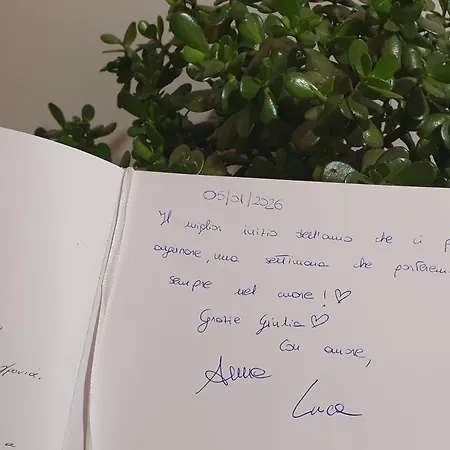 05/01/2026
Il miglior inizio dell'anno che ci p
augurare, una settimana che porterem
sempre nel cuore! ♡
Grazie Giulia ♡
Con amore,
Anna
Luca